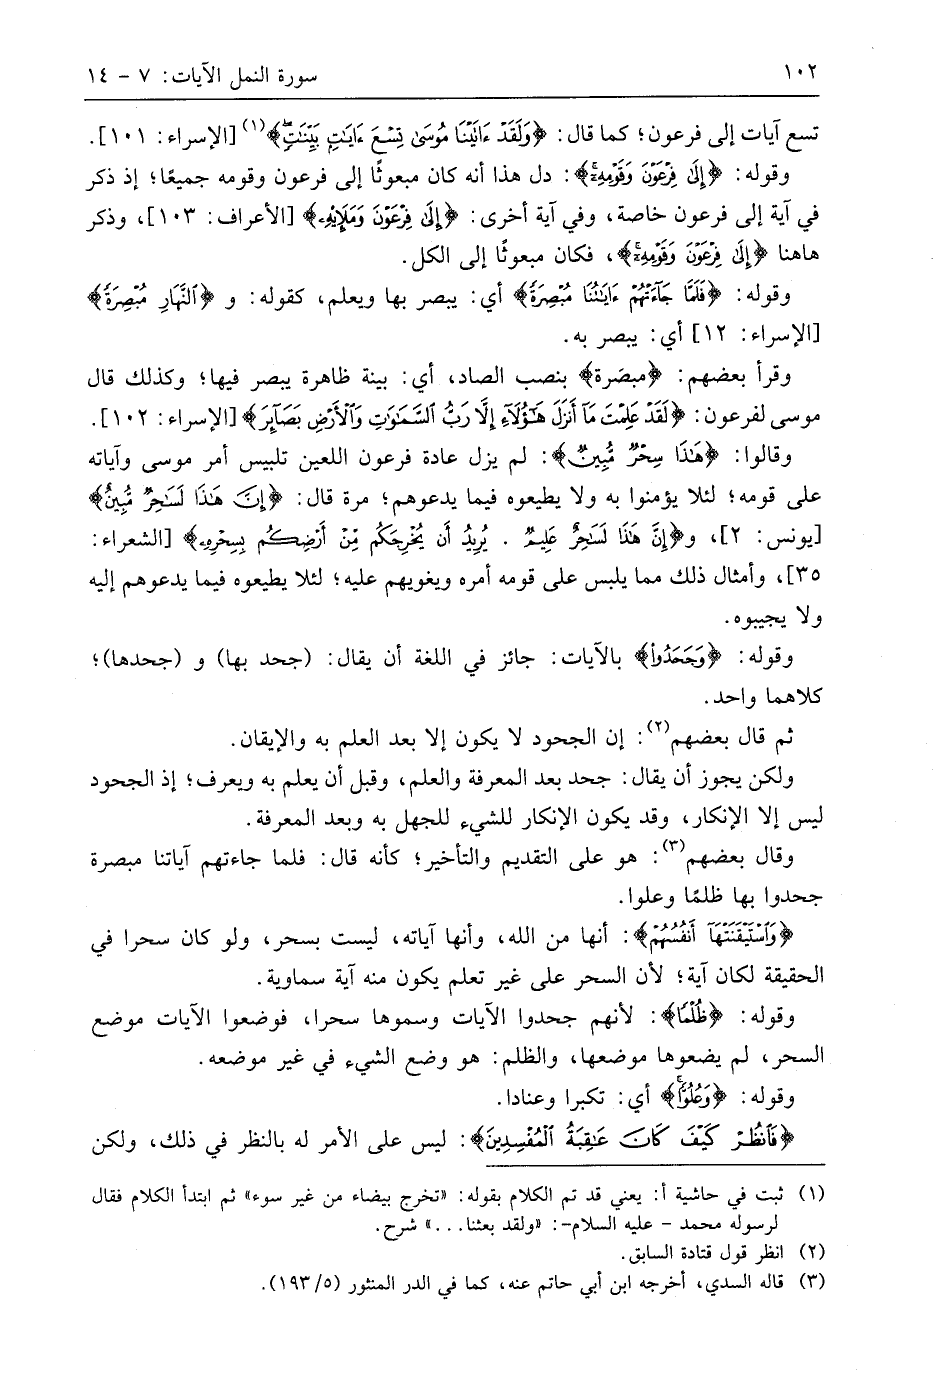 ١٠٢ سورة النمل الآيات: ٧ - ١٤
تسع آيات إلى فرعون؛ كما قال: ﴿وَلَقَدْ ءَاتَيْنَا مُوسَىٰ تِسْعَ ءَايَٰتٍۭ بَيِّنَٰتٍۖ﴾(١) [الإسراء: ١٠١].
وقوله: ﴿إِلَىٰ فِرْعَوْنَ وَقَوْمِهِۦٓۚ﴾: دل هذا أنه كان مبعوثًا إلى فرعون وقومه جميعًا؛ إذ ذكر
في آية إلى فرعون خاصة، وفي آية أخرى: ﴿إِلَىٰ فِرْعَوْنَ وَمَلَإِيْهِۦ﴾ [الأعراف: ١٠٣]، وذكر
هاهنا ﴿إِلَىٰ فِرْعَوْنَ وَقَوْمِهِۦٓۚ﴾، فكان مبعوثًا إلى الكل.
وقوله: ﴿فَلَمَّا جَآءَتْهُمْ ءَايَٰتُنَا مُبْصِرَةً﴾ أي: يبصر بها ويعلم، كقوله: و ﴿ٱلنَّهَارِ مُبْصِرَةً﴾
[الإسراء: ١٢] أي: يبصر به.
وقرأ بعضهم: ﴿مبصَرة﴾ بنصب الصاد، أي: بينة ظاهرة يبصر فيها؛ وكذلك قال
موسى لفرعون: ﴿لَقَدْ عَلِمْتَ مَآ أَنزَلَ هَٰٓؤُلَآءِ إِلَّا رَبُّ ٱلسَّمَٰوَٰتِ وَٱلْأَرْضِ بَصَآئِرَ﴾ [الإسراء: ١٠٢].
وقالوا: ﴿هَٰذَا سِحْرٌ مُّبِينٌ﴾: لم يزل عادة فرعون اللعين تلبيس أمر موسى وآياته
على قومه؛ لئلا يؤمنوا به ولا يطيعوه فيما يدعوهم؛ مرة قال: ﴿إِنَّ هَٰذَا لَسَٰحِرٌ مُّبِينٌ﴾
[يونس: ٢]، و﴿إِنَّ هَٰذَا لَسَٰحِرٌ عَلِيمٌ . يُرِيدُ أَن يُخْرِجَكُم مِّنْ أَرْضِكُم بِسِحْرِهِۦ﴾ [الشعراء:
٣٥]، وأمثال ذلك مما يلبس على قومه أمره ويغويهم عليه؛ لئلا يطيعوه فيما يدعوهم إليه
ولا يجيبوه.
وقوله: ﴿وَجَحَدُوا۟﴾ بالآيات: جائز في اللغة أن يقال: (جحد بها) و (جحدها)؛
كلاهما واحد.
ثم قال بعضهم(٢): إن الجحود لا يكون إلا بعد العلم به والإيقان.
ولكن يجوز أن يقال: جحد بعد المعرفة والعلم، وقبل أن يعلم به ويعرف؛ إذ الجحود
ليس إلا الإنكار، وقد يكون الإنكار للشيء للجهل به وبعد المعرفة.
وقال بعضهم(٣): هو على التقديم والتأخير؛ كأنه قال: فلما جاءتهم آياتنا مبصرة
جحدوا بها ظلمًا وعلوا.
﴿وَٱسْتَيْقَنَتْهَآ أَنفُسُهُمْ﴾: أنها من الله، وأنها آياته، ليست بسحر، ولو كان سحرا في
الحقيقة لكان آية؛ لأن السحر على غير تعلم يكون منه آية سماوية.
وقوله: ﴿ظُلْمًا﴾: لأنهم جحدوا الآيات وسموها سحرا، فوضعوا الآيات موضع
السحر، لم يضعوها موضعها، والظلم: هو وضع الشيء في غير موضعه.
وقوله: ﴿وَعُلُوًّاۚ﴾ أي: تكبرا وعنادا.
﴿فَٱنظُرْ كَيْفَ كَانَ عَٰقِبَةُ ٱلْمُفْسِدِينَ﴾: ليس على الأمر له بالنظر في ذلك، ولكن
(١) ثبت في حاشية أ: يعني قد تم الكلام بقوله: «تخرج بيضاء من غير سوء» ثم ابتدأ الكلام فقال
لرسوله محمد - عليه السلام-: «ولقد بعثنا...» شرح.
(٢) انظر قول قتادة السابق.
(٣) قاله السدي، أخرجه ابن أبي حاتم عنه، كما في الدر المنثور (٥/١٩٣).